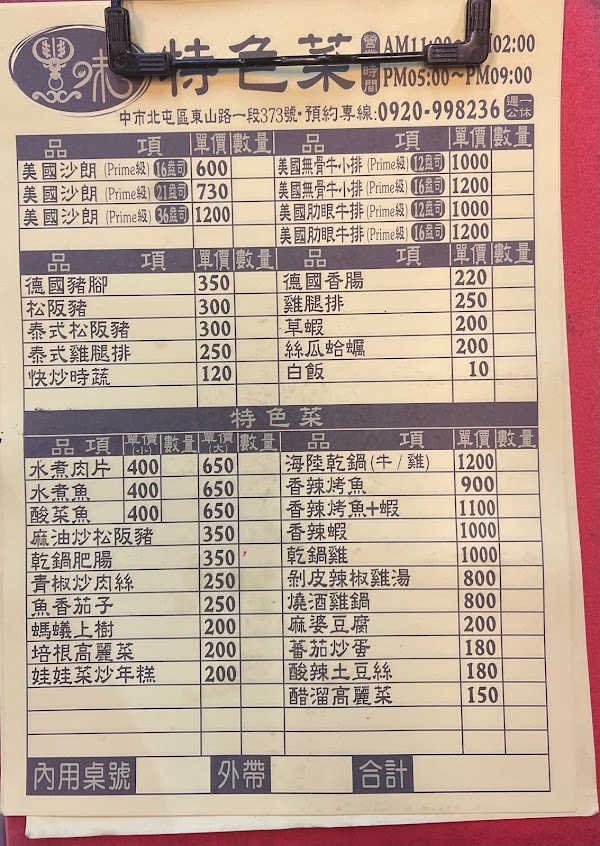 味 特色菜 營業時間 AM11:00~PM02:00
PM05:00~PM09:00
中市北屯區東山路一段373號・預約專線:0920-998236 週一公休
品項 單價 數量 品項 單價 數量
美國沙朗 (Prime級) 16盎司 600 美國無骨牛小排 (Prime級) 12盎司 1000
美國沙朗 (Prime級) 21盎司 730 美國無骨牛小排 (Prime級) 16盎司 1200
美國沙朗 (Prime級) 36盎司 1200 美國肋眼牛排 (Prime級) 12盎司 1000
美國肋眼牛排 (Prime級) 16盎司 1200
品項 單價 數量 品項 單價 數量
德國豬腳 350 德國香腸 220
松阪豬 300 雞腿排 250
泰式松阪豬 300 草蝦 200
泰式雞腿排 250 絲瓜蛤蠣 200
快炒時蔬 120 白飯 10
特色菜
品項 單價(小) 數量 單價(大) 數量 品項 單價 數量
水煮肉片 400 650 海陸乾鍋(牛/雞) 1200
水煮魚 400 650 香辣烤魚 900
酸菜魚 400 650 香辣烤魚+蝦 1100
麻油炒松阪豬 350 香辣蝦 1000
乾鍋肥腸 350 乾鍋雞 1000
青椒炒肉絲 250 剝皮辣椒雞湯 800
魚香茄子 250 燒酒雞鍋 800
螞蟻上樹 200 麻婆豆腐 200
培根高麗菜 200 蕃茄炒蛋 180
娃娃菜炒年糕 200 酸辣土豆絲 180
醋溜高麗菜 150
內用桌號 外帶 合計